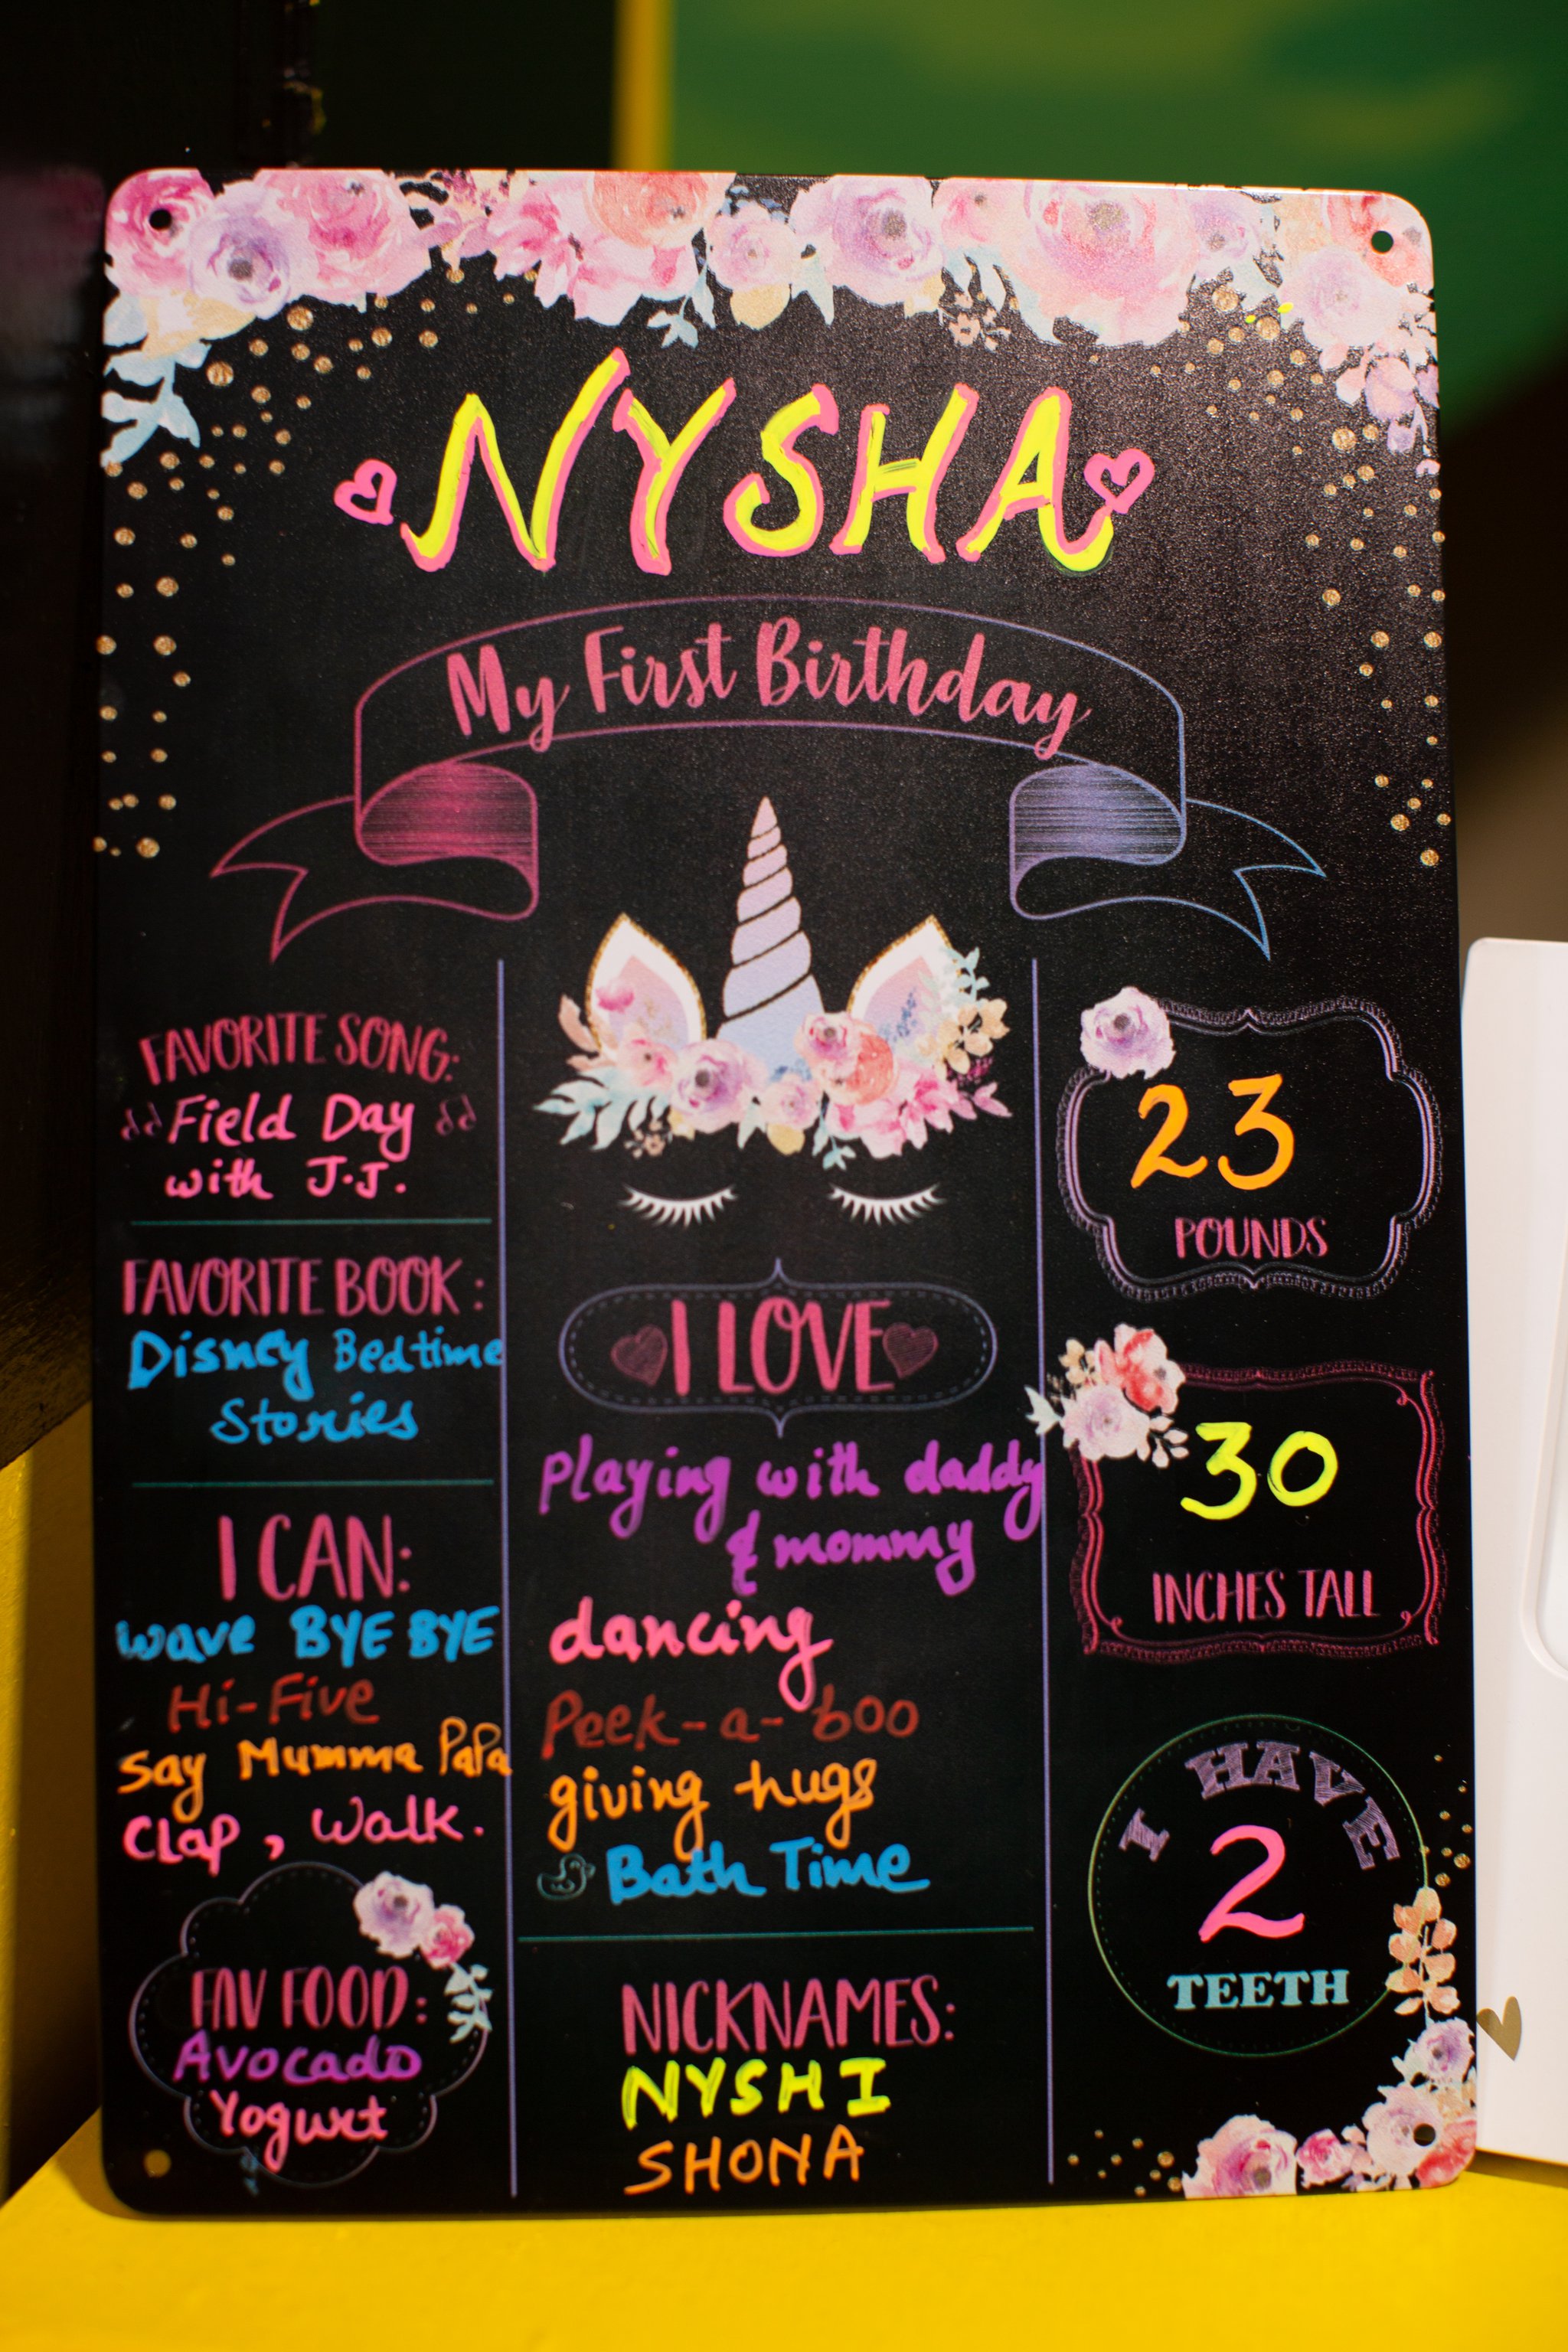 NYSHA
My First Birthday
FAVORITE SONG:
Field Day
with J.J.
FAVORITE BOOK:
Disney Bedtime
Stories
I CAN:
wave BYE BYE
Hi-Five
Say Mumma PaPa
Clap, Walk.
FAV FOOD:
Avocado
Yogurt
I LOVE
Playing with daddy
& mommy
dancing
Peek-a-boo
giving hugs
Bath Time
NICKNAMES:
NYSHI
SHONA
23
POUNDS
30
INCHES TALL
I HAVE
2
TEETH